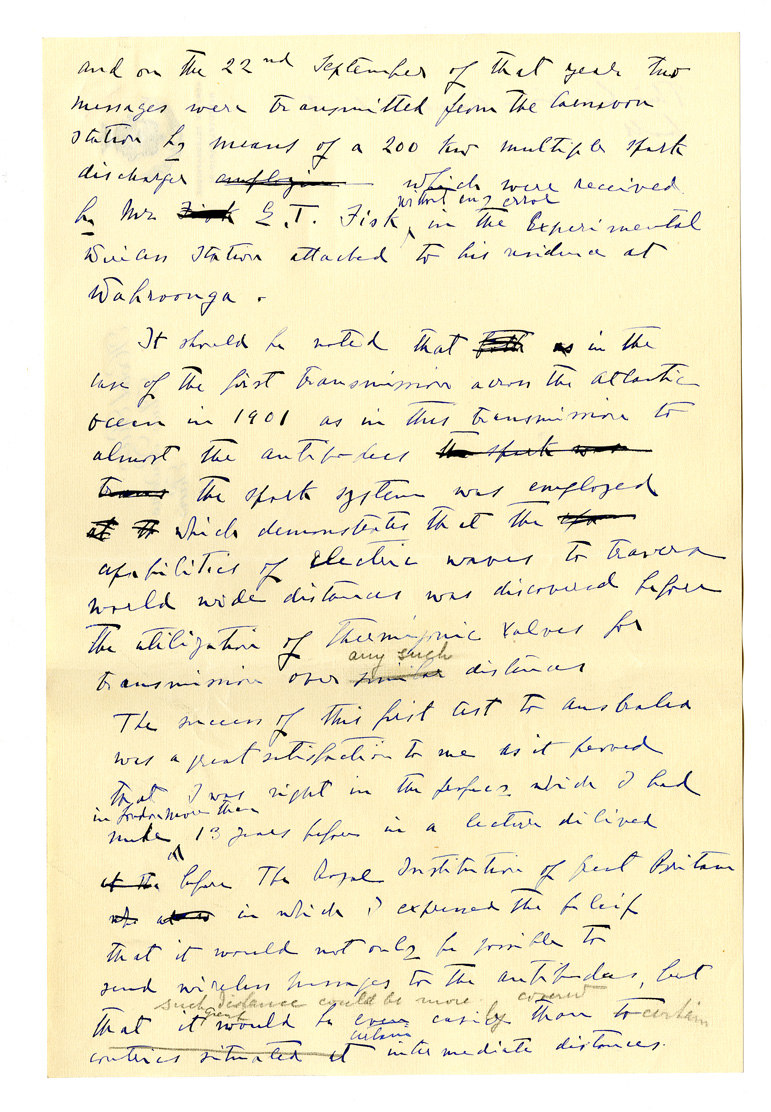 and on the 22nd September of that year two
messages were transmitted from the Caernarvon
station by means of a 200 KW multiple spark
discharger employing which were received
without any error
by Mr Fisk E.T. Fisk, in the Experimental
Wireless Station attached to his residence at
Wahroonga.
It should be noted that both as in the
case of the first transmission across the atlantic
ocean in 1901 as in this transmission to
almost the antipodes the spark was
trans the spark system was employed
at th which demonstrates that the spa
capabilities of electric waves to travers
world wide distances was discovered before
the utilization of thermionic valves for
any such
transmission over similar distances
The success of this first test to australia
was a great satisfaction to me as it proved
that I was right in the profecy which I had
in London more than
made 13 years before in a lecture dilived
at the before The Royal Institution of great Britain
in which I expressed the bileif
that it would not only be possible to
send wireless messages to the antipodes, but
such great distance could be more covered
that it would be even easily than to certain
certain
contries situated at intermediate distances.